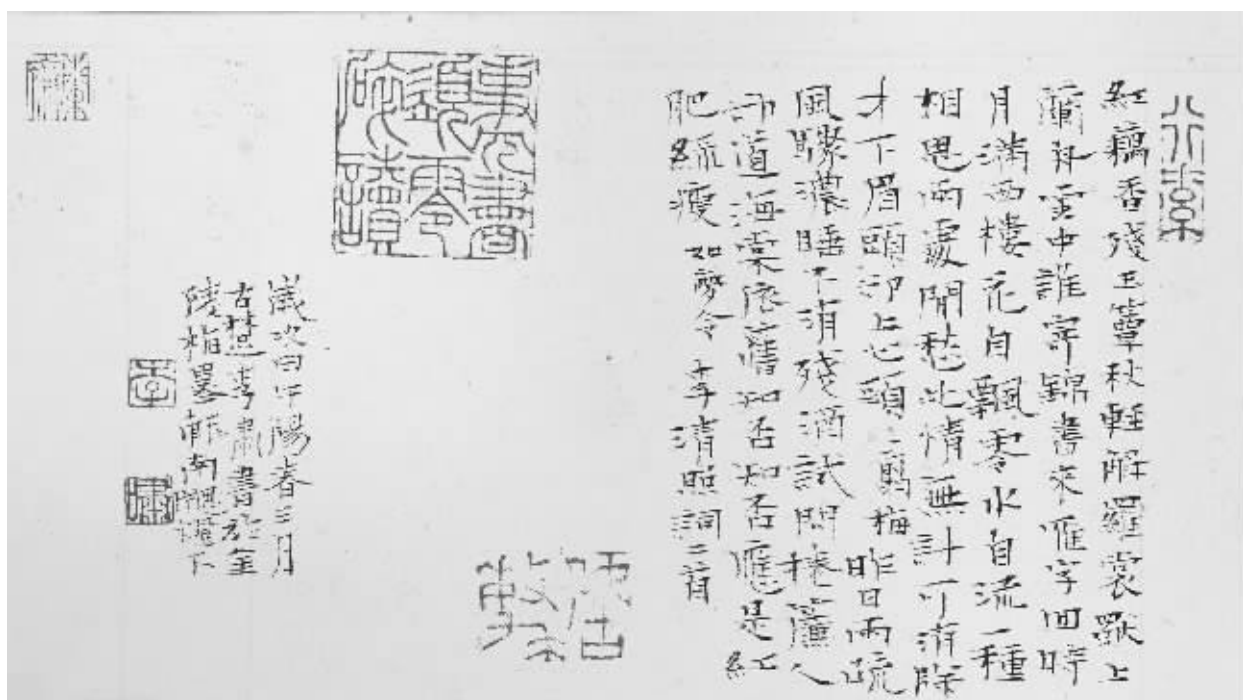 紅藕香殘玉簟秋輕解羅裳獨上
蘭舟雲中誰寄錦書來雁字回時
月滿西樓花自飄零水自流一種
相思兩處閒愁此情無計可消除
才下眉頭卻上心頭 一剪梅 昨日雨疏
風驟濃睡不消殘酒試問捲簾人
卻道海棠依舊知否知否應是紅
肥綠瘦 如夢令 李清照詞二首
歲次甲午陽春三月
古楚李肅書於金
陵墨軒南窗下